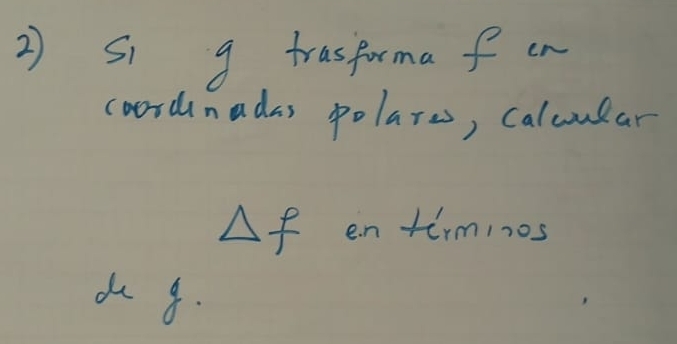 2) Si g trasforma f en
coordenadas polares, calcular
Δf en términos
de g.